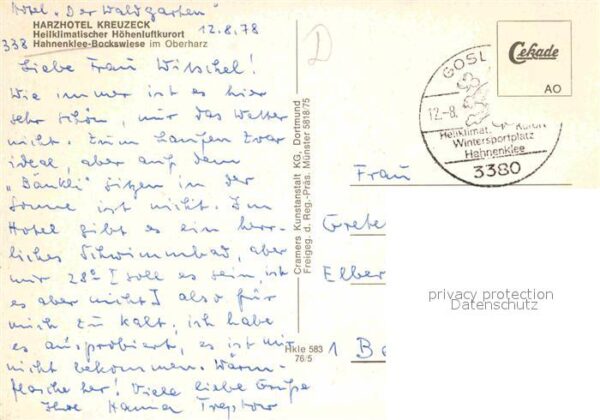 Hotel "Der Waldgarten"
HARZHOTEL KREUZECK
Heilklimatischer Höhenluftkurort
Hahnenklee-Bockswiese im Oberharz
338
12.8.78
Liebe Frau Witschel!
Wie immer ist es hier
sehr schön, nur das Wetter
nicht. Zum Laufen zwar
ideal, aber auf dem
"Bänkli" sitzen in der
Sonne ist nicht. Im
Hotel gibt es ein herr-
liches Schwimmbad, aber
nur 28° [soll es sein, ist
es aber nicht] also für
mich zu kalt, ich habe
es ausprobiert, es ist mir
nicht bekommen. Wärm-
flasche her! Viele liebe Grüße
Ihre Hanna Treptow
D
Cramers Kunstanstalt KG, Dortmund
Freigeg. d. Reg.-Präs. Münster 5818/75
Hkle 583
76/5
Cekade
AO
GOSL
12.-8.
Heilklimat. Kurort
Wintersportplatz
Hahnenklee
3380
Frau
Grete
Elber
1 Be
privacy protection
Datenschutz